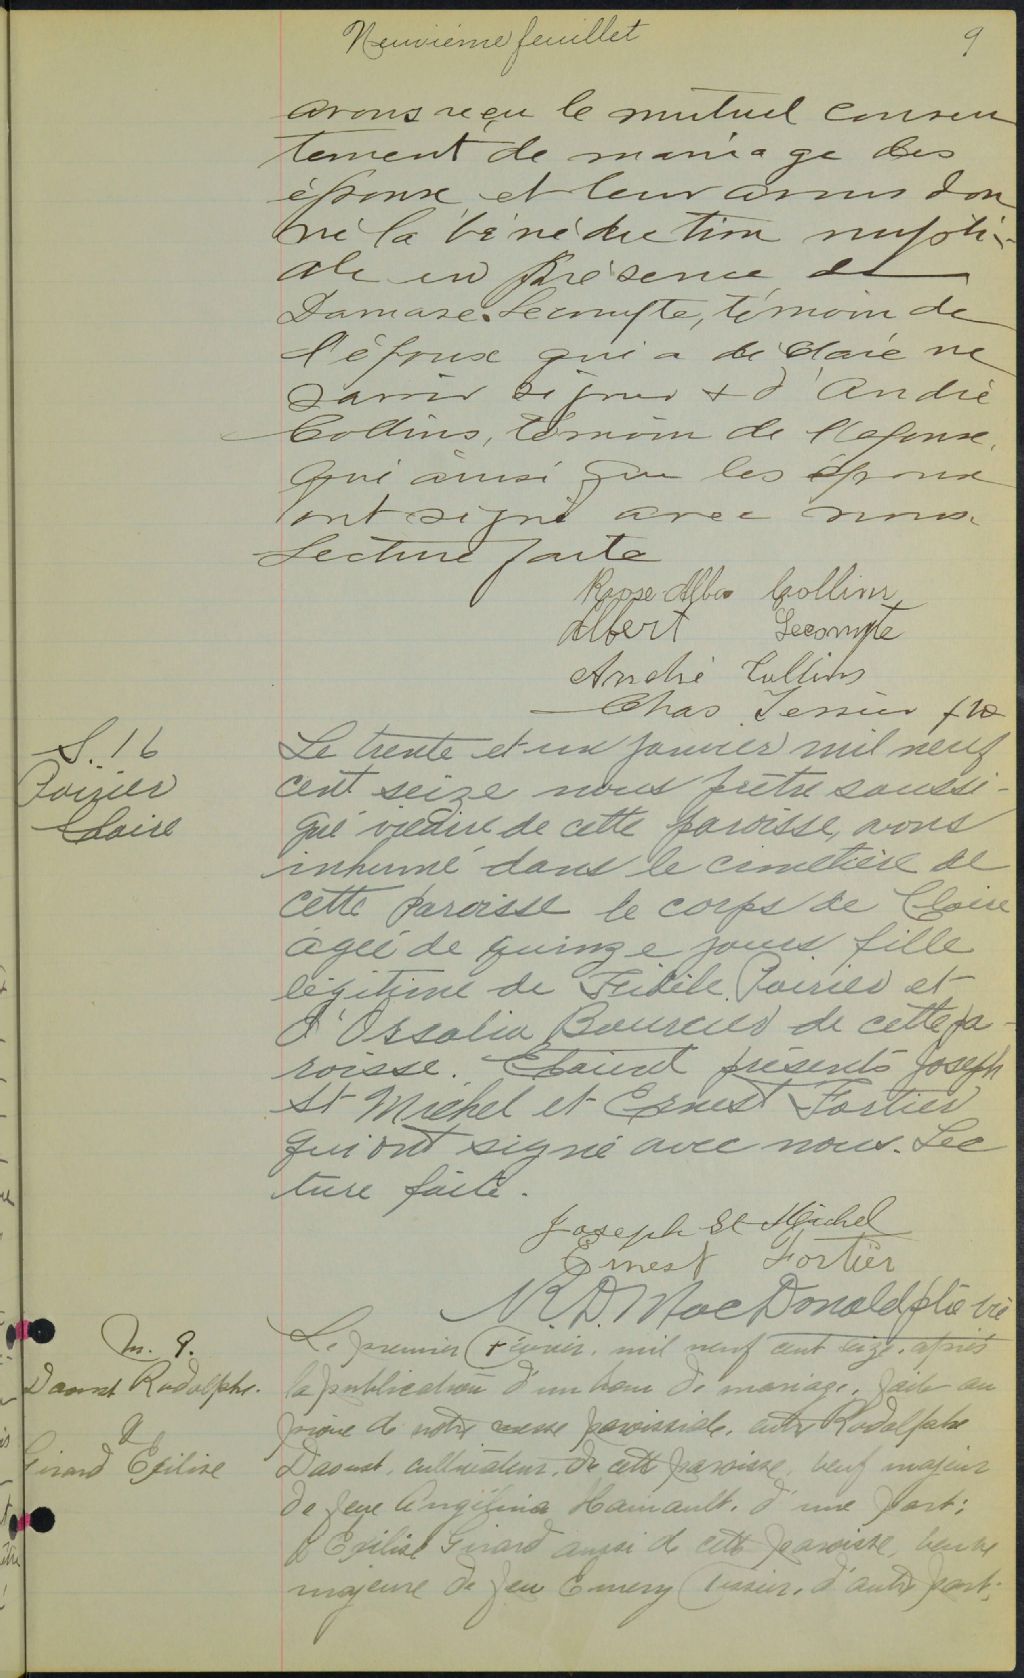 Neuvième feuillet 9
avons reçu le mutuel consen
tement de mariage des
époux et leur avons don
né la bénédiction nupti-
ale en présence de
Damase Lecompte, témoin de
l'époux qui a déclaré ne
savoir signer & d'André
Collins, témoin de l'épouse,
qui ainsi que les époux
ont signé avec nous.
Lecture faite
Rose-Alba Collins
Albert Lecompte
André Collins
Chas Tessier
S. 16
Poirier
Claire
Le trente et un janvier mil neuf
cent seize nous prêtre soussi-
gné vicaire de cette paroisse, avons
inhumé dans le cimetière de
cette paroisse le corps de Claire
agée de quinze jours fille
légitime de Poirier et
d' de cette pa-
roisse. Etaient présents Joseph
St Michel et Ernest Fortier
qui ont signé avec nous. Lec
ture faite.
Joseph St Michel
Ernest Fortier
N. D. MacDonald ptre vic
M. 9.
Daoust Rodolphe.
&
Girard Exilise
Le premier Février, mil neuf cent seize, après
la publication d'un ban de mariage, faite au
prône de notre messe paroissiale, entre Rodolphe
Daoust, cultivateur, de cette paroisse, veuf majeur
de feue Angélina Hainault, d'une part;
& Exilise Girard aussi de cette paroisse, veuve
majeure de feu Emery Tessier, d'autre part;